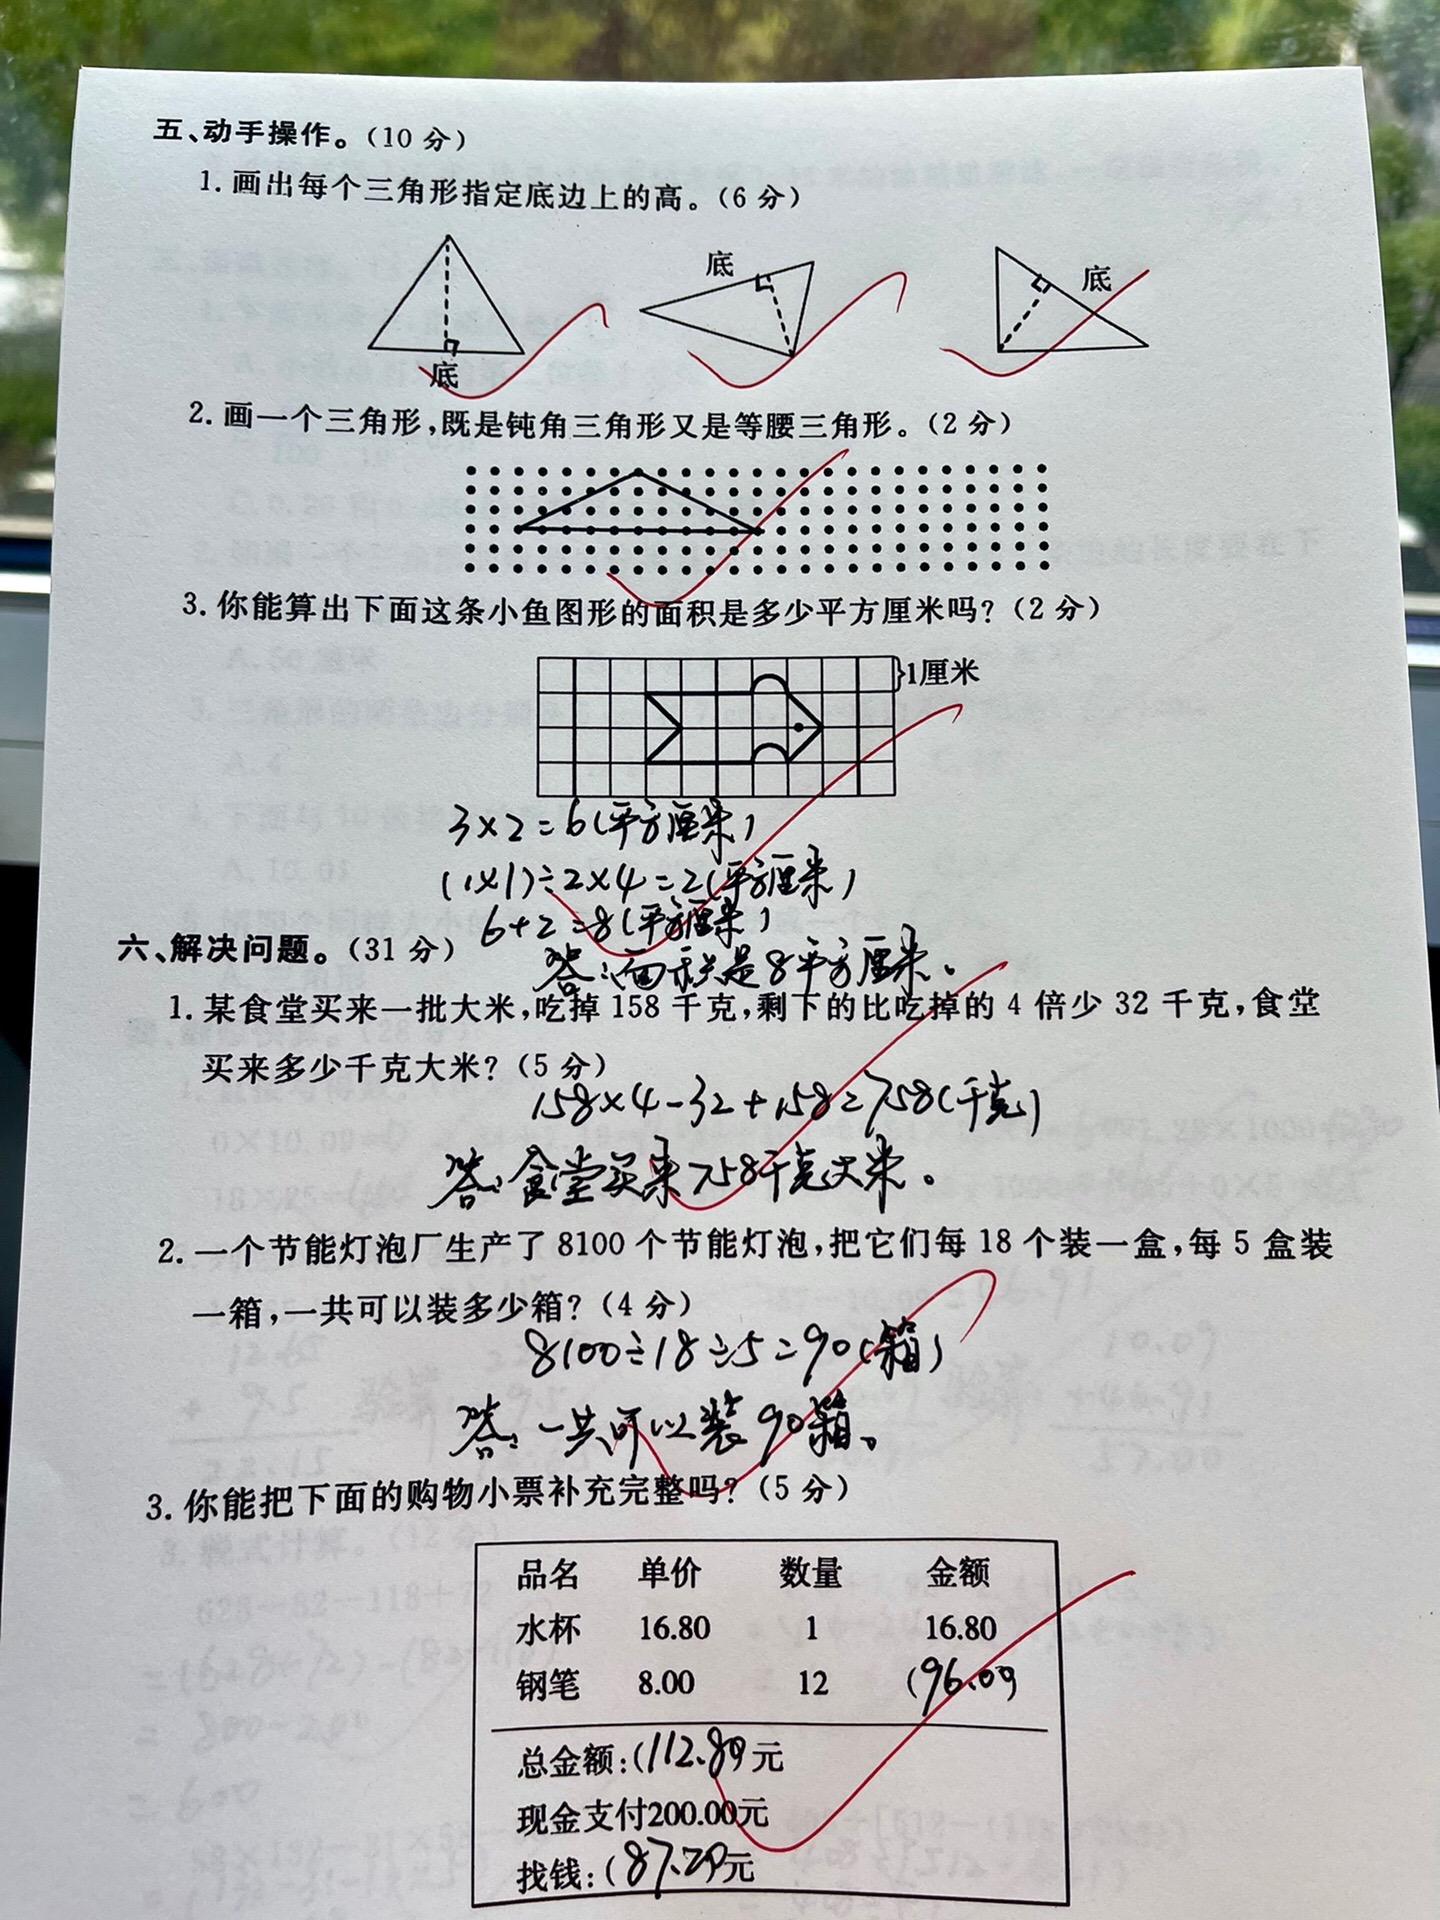 五、动手操作。(10 分)
1. 画出每个三角形指定底边上的高。(6 分)
底
底
底
2. 画一个三角形,既是钝角三角形又是等腰三角形。(2 分)
3. 你能算出下面这条小鱼图形的面积是多少平方厘米吗?(2 分)
}1厘米
3×2=6(平方厘米)
(1×1)÷2×4=2(平方厘米)
6+2=8(平方厘米)
答:面积是8平方厘米。
六、解决问题。(31 分)
1. 某食堂买来一批大米,吃掉 158 千克,剩下的比吃掉的 4 倍少 32 千克,食堂
买来多少千克大米?(5 分)
158×4-32+158=758(千克)
答:食堂买来758千克大米。
2. 一个节能灯泡厂生产了 8100 个节能灯泡,把它们每 18 个装一盒,每 5 盒装
一箱,一共可以装多少箱?(4 分)
8100÷18÷5=90(箱)
答:一共可以装90箱。
3. 你能把下面的购物小票补充完整吗?(5 分)
品名 单价 数量 金额
水杯 16.80 1 16.80
钢笔 8.00 12 (96.00)
总金额:(112.80)元
现金支付200.00元
找钱:(87.20)元